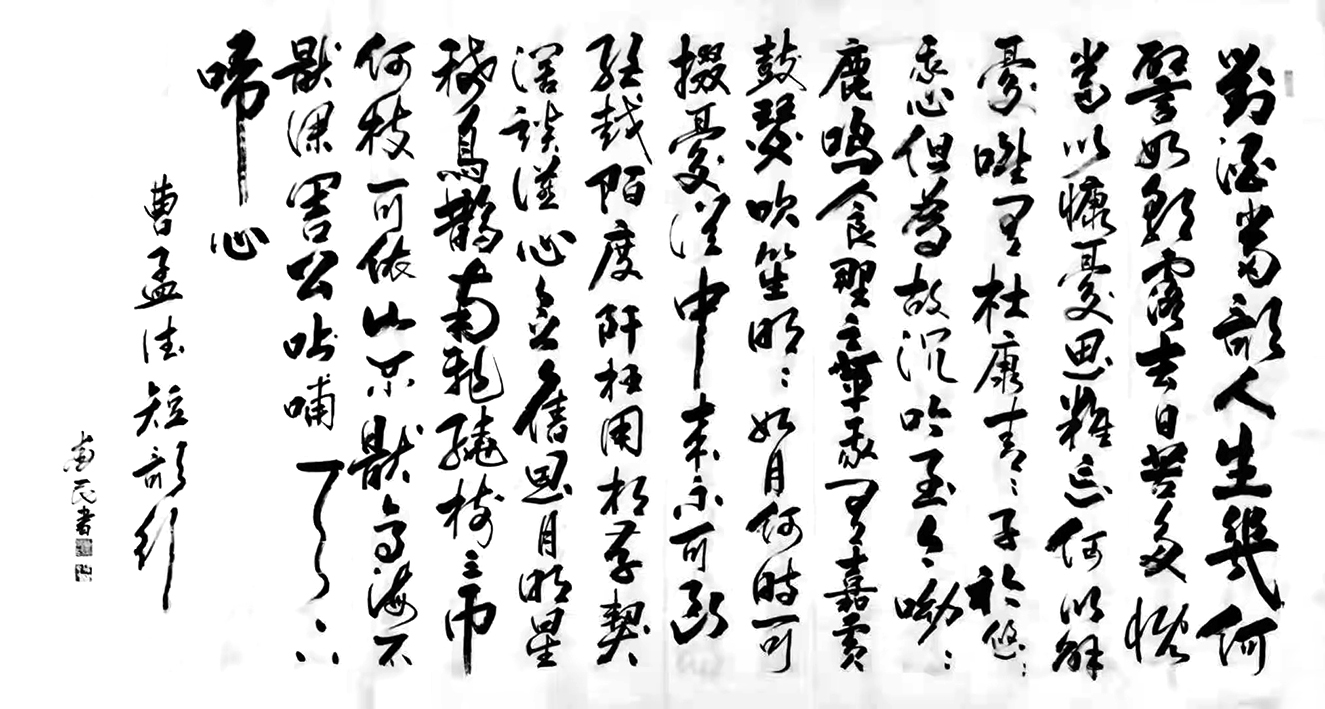 對酒當歌人生幾何
譬如朝露去日苦多慨
當以慷憂思難忘何以解
憂唯有杜康青〻子衿悠〻
我心但為故沉吟至今呦〻
鹿鳴食野之苹我有嘉賓
鼓瑟吹笙明〻如月何時可
掇憂從中來不可斷
越陌度阡枉用相存契
闊談讌心念舊恩月明星
稀烏鵲南飛繞樹三帀
何枝可依山不厭高海不
厭深周公吐哺天下
歸心
曹孟德短歌行
民書